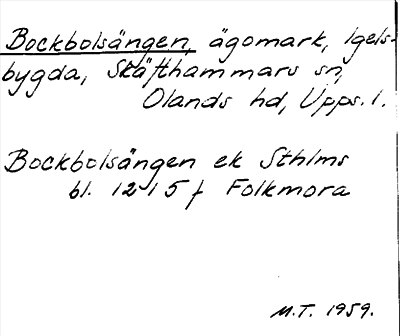 Bockbolsängen, ägomark, Igels-
bygda, Skäfthammars sn,
Olands hd, Upps. l.
Bockbolsängen ek Sthlms
bl. 12 1 5 f Folkmora
M.T. 1959.